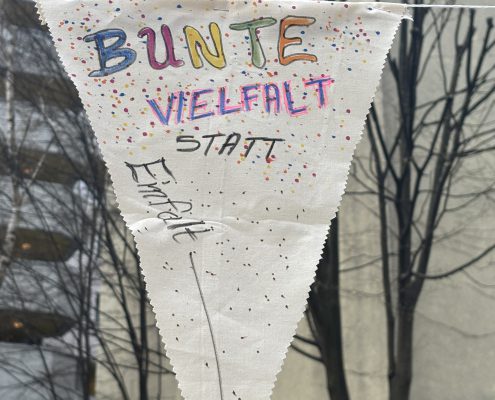 BUNTE
VIELFALT
STATT
Einfalt